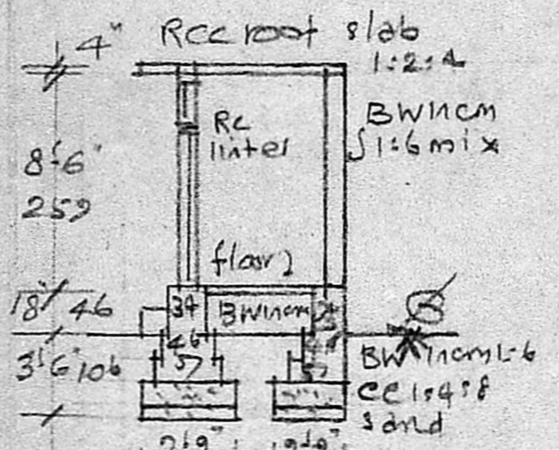 4"
RCC roof slab
1:2:4
BW in cm
1:6 mix
RC
lintel
8'-6"
259
floor
18" 46
34
BW in cm
46
57
3'-6" 106
BW in cm 1:6
CC 1:4:8
sand
2'9"
2'9"